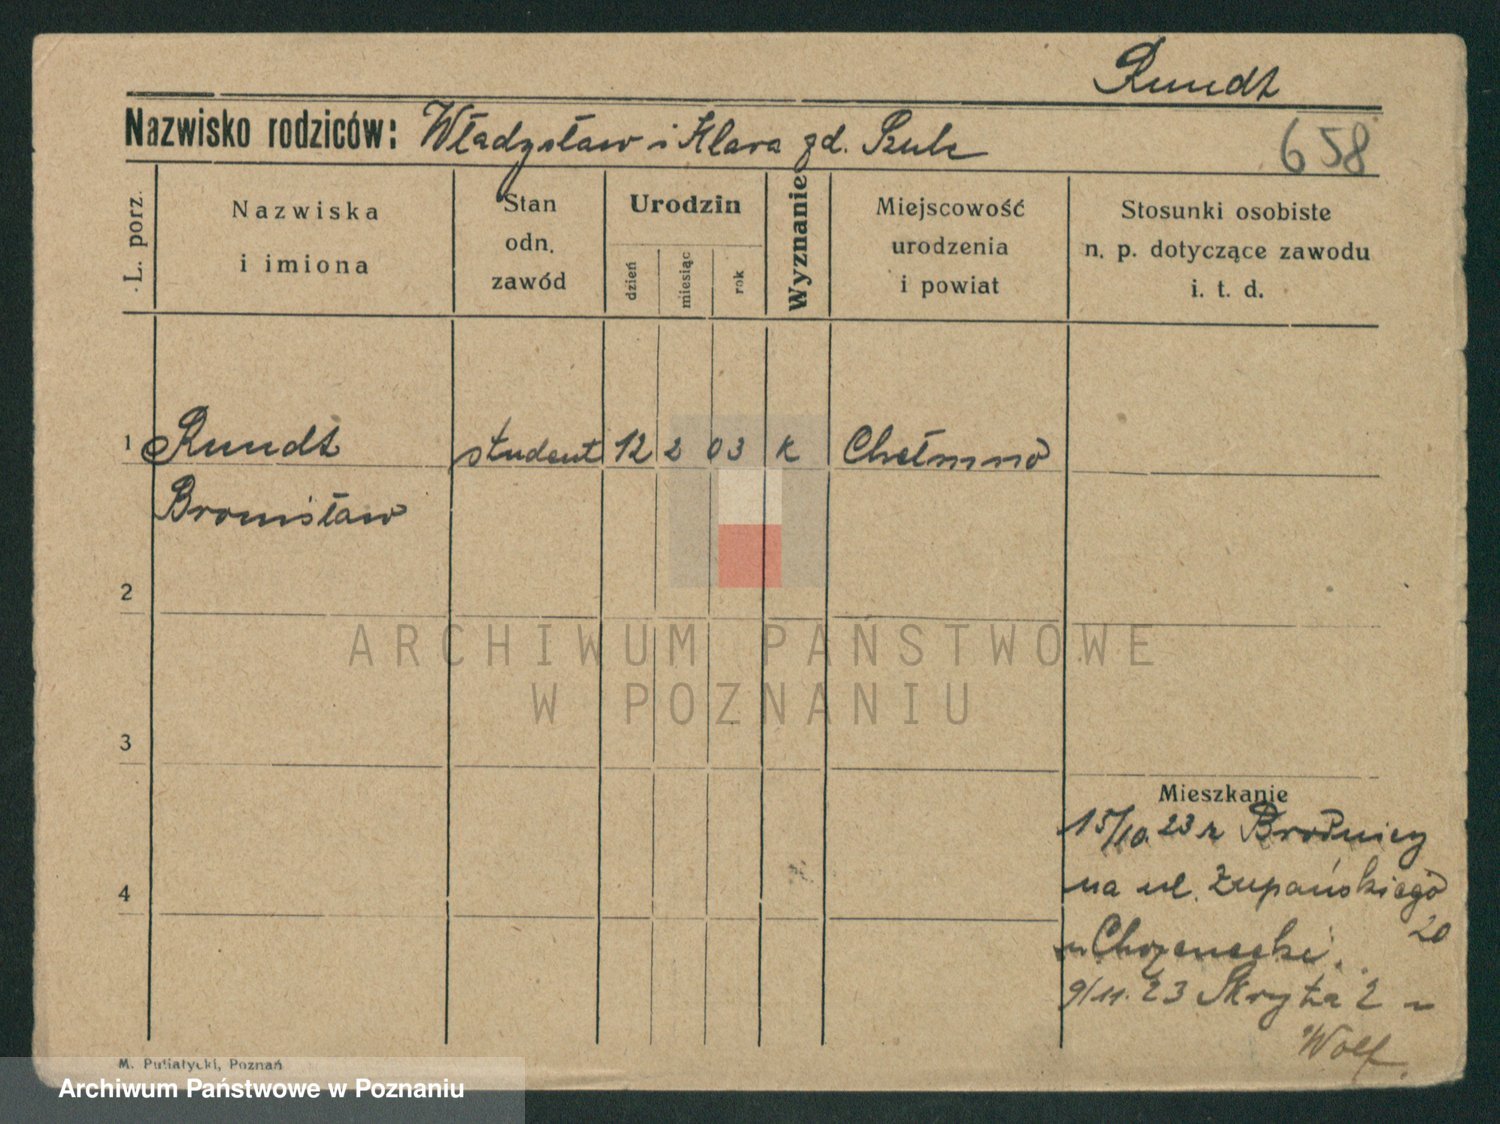 Rundt
Nazwisko rodziców: Władysław i Klara zd. Szulc
658
L. porz.
Nazwiska
i imiona
Stan
odn.
zawód
Urodzin
dzień
miesiąc
rok
Wyznanie
Miejscowość
urodzenia
i powiat
Stosunki osobiste
n. p. dotyczące zawodu
i. t. d.
1 Rundt student 12 2 03 k Chełmno
Bronisław
2
ARCHIWUM PAŃSTWOWE
W POZNANIU
3
Mieszkanie
15/10.23 z Brodnicy
4
na ul. Żupańskiego
20
u
9/11.23 Skryta 2 u
Wolf.
M. Putiatycki, Poznań
Archiwum Państwowe w Poznaniu